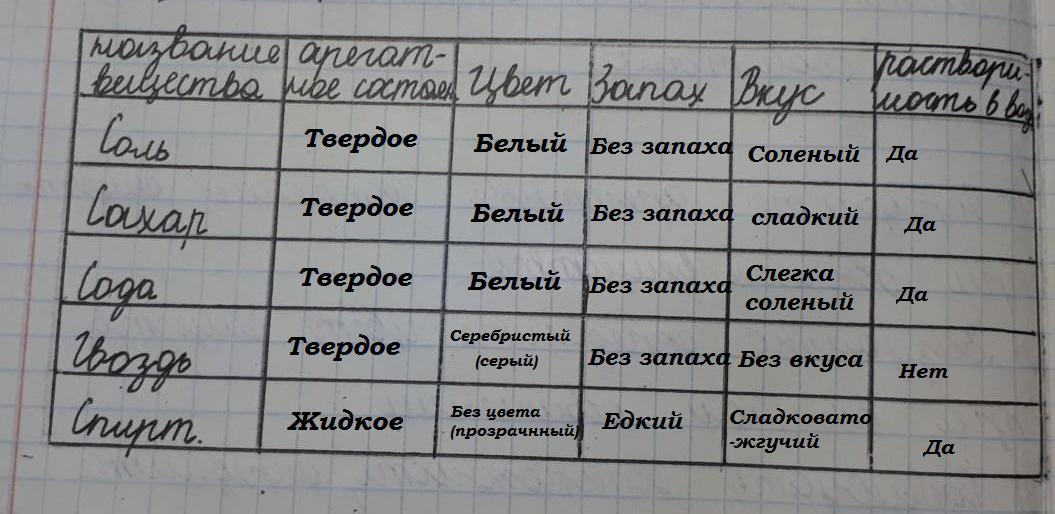 название агрегат- Цвет Запах Вкус раствори-
вещества ное состоян. мость в вод.
Соль Твердое Белый Без запаха Соленый Да
Сахар Твердое Белый Без запаха сладкий Да
Сода Твердое Белый Без запаха Слегка соленый Да
Гвоздь Твердое Серебристый (серый) Без запаха Без вкуса Нет
Спирт. Жидкое Без цвета (прозрачнный) Едкий Сладковато -жгучий Да